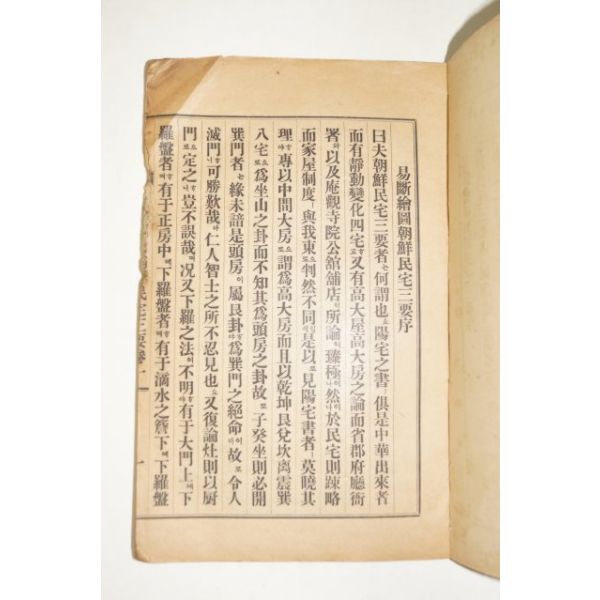 易斷繪圖朝鮮民宅三要序
曰夫朝鮮民宅三要者는何謂也오陽宅之書俱是中華出來者
而有靜動變化四宅고又有高大屋高大房之論而省郡府廳衙
署와以及庵觀寺院公舘舖店所論이臻極나然이나於民宅則疎略
而家屋制度ㅣ與我東으로判然不同이라是以로見陽宅書者ㅣ莫曉其
理야專以中間大房으로謂爲高大房而且以乾坤艮兌坎离震巽
八宅으로爲坐山之卦而不知其爲頭房之卦故로子癸坐則必開
巽門者는緣未諳是頭房이屬艮卦야爲巽門之絕命이라故로令人
滅門니可勝歎哉아仁人智士之所不忍見也오又復論灶則以厨
門으로定之니豈不誤哉아况又下羅之法이不明야有于大門上에下
羅盤者며有于正房中에下羅盤者며有于滴水之簷下에下羅盤
民宅三要卷一
一